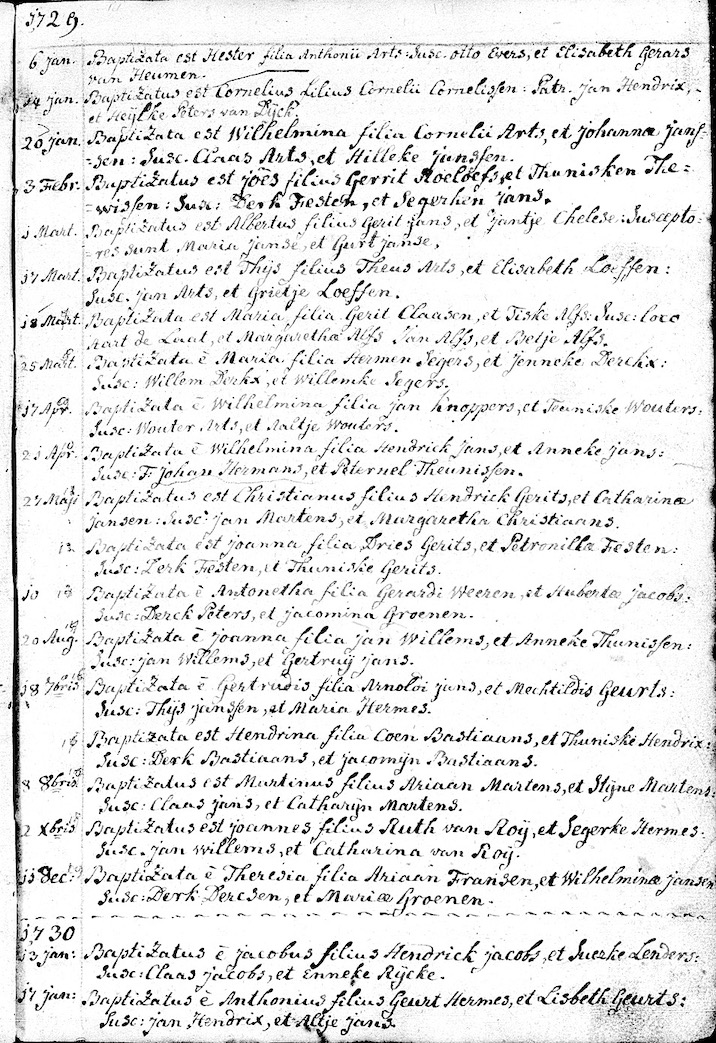 1729.
6 jan. Baptizata est Hester filia Anthonii Arts: Susc. Otto Evers, et Elisabeth Gerars
van Heumen.
14 jan. Baptizatus est Cornelius filius Cornelii Cornelissen: Patr. Jan Hendrix,
et Heijlke Peters van Dijck.
20 jan. Baptizata est Wilhelmina filia Cornelii Arts, et Johannæ Jans-
-sen: Susc. Claas Arts, et Hilleke Janssen.
3 Febr. Baptizatus est Joës filius Gerrit Roeloefs, et Thunisken The=
=wissen: Susc: Derk Festen, et Segerken Jans.
1 Mart. Baptizatus est Albertus filius Gerit Jans, et Jantje Chelese: Suscepto-
=res sunt Maria Janse, et Gurt Janse.
17 Mart. Baptizatus est Thijs filius Theus Arts, et Elisabeth Loeffen:
Susc: Jan Arts, et Grietje Loeffen.
18 Mart. Baptizata est Maria filia Gerit Claasen, et Fiske Alfs: Susc: loco
Hart de Laat, et Margarethæ Alfs Jan Alfs, et Betje Alfs.
25 Mart. Baptizata ē Maria filia Hermen Segers, et Jenneke Derckx:
Susc: Willem Derkx, et Willemke Segers.
17 Apr. Baptizata ē Wilhelmina filia Jan Knoppers, et Teuniske Wouters:
Susc: Wouter Arts, et Aaltje Wouters.
21 Apr. Baptizata ē Wilhelmina filia Hendrick Jans, et Anneke Jans:
Susc: F: Johan Hermans, et Peternel Theunissen.
27 Maji Baptizatus est Christianus filius Hendrick Gerits, et Catharinæ
Jansen: Susc: Jan Martens, et Margaretha Christiaans.
Baptizata est Joanna filia Dries Gerits, et Petronilla Festen:
Susc: Derk Festen, et Thuniske Gerits.
10 Baptizata ē Antonetha filia Gerardi Weeren, et Hubertæ Jacobs:
Susc: Derck Peters, et Jacomina Groenen.
20 Aug. Baptizata ē Joanna filia Jan Willems, et Anneke Thunissen:
Susc: Jan Willems, et Gertruij Jans.
18 7bris Baptizata ē Gertrudis filia Arnoldi Jans, et Mechtildis Geurts:
Susc: Thijs Janssen, et Maria Hermes.
Baptizata est Hendrina filia Coen Bastiaans, et Thuniske Hendrix:
Susc: Derk Bastiaans, et Jacomijn Bastiaans.
8 8bris Baptizatus est Martinus filius Ariaan Martens, et Stijne Martens:
Susc: Claas Jans, et Catharijn Martens.
2 Xbris Baptizatus est Joannes filius Ruth van Roij, et Segerke Hermes.
Susc. Jan Willems, et Catharina van Roij.
15 Dec: Baptizata ē Theresia filia Ariaan Fransen, et Wilhelminæ Jansen
Susc: Derk Dercsen, et Mariæ Groenen.
1730
13 jan: Baptizatus ē Jacobus filius Hendrick Jacobs, et Suerke Lenders:
Susc: Claas Jacobs, et Enneke Rijcke.
17 jan: Baptizatus ē Anthonius filius Geurt Hermes, et Lisbeth Geurts:
Susc: Jan Hendrix, et Altje Jans.